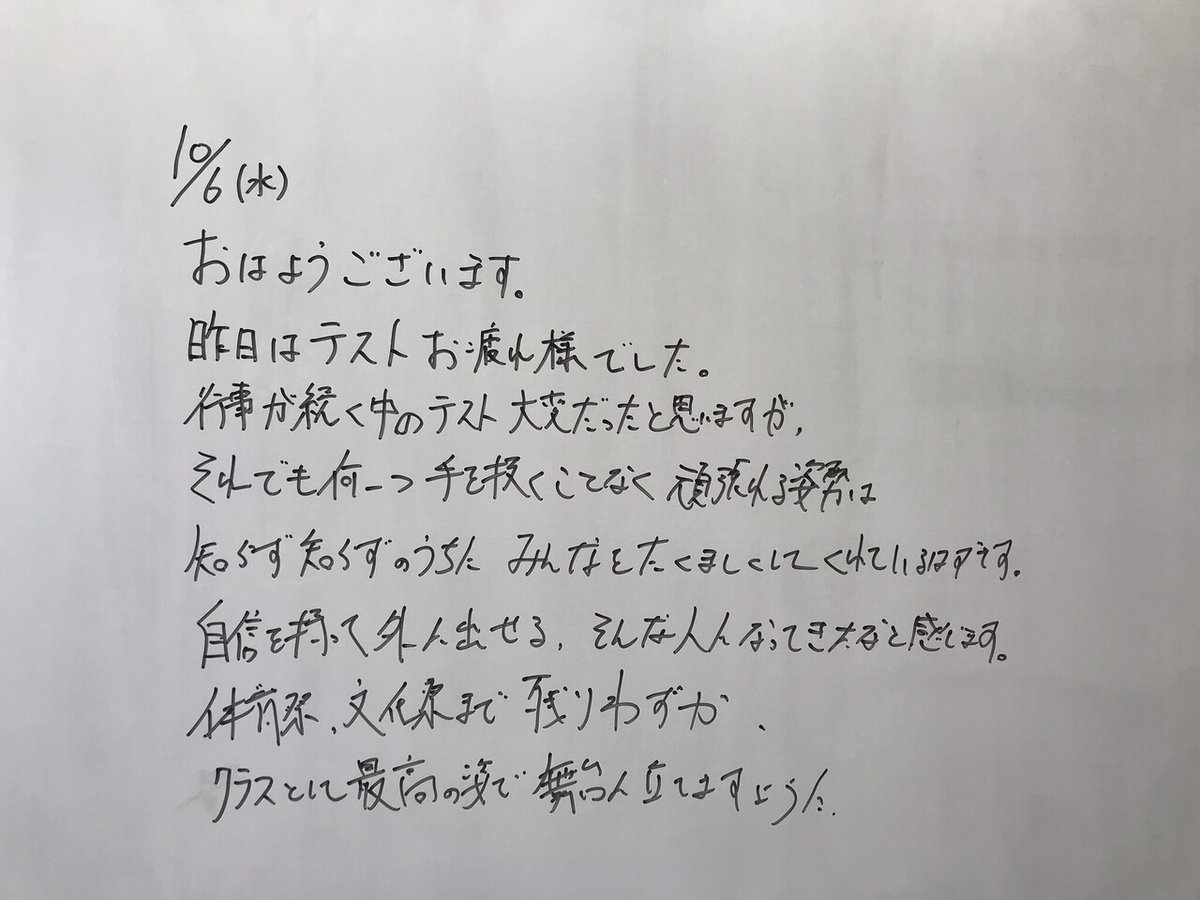 10/6(水)
おはようございます。
昨日はテストお疲れ様でした。
行事が続く中のテスト大変だったと思いますが、
それでも何一つ手を抜くことなく頑張れる姿勢は
知らず知らずのうちに みんなをたくましくしてくれているはずです。
自信を持って外に出せる、そんな人になってきたなと感じます。
体育祭、文化祭まで残りわずか、
クラスとして最高の姿で舞台に立てますように。